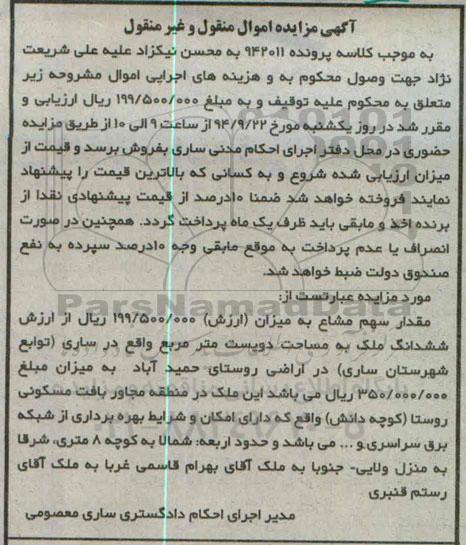 آگهی مزایده اموال منقول و غیر منقول
به موجب کلاسه پرونده ۹۴۲۰۱۱ به محسن نیکزاد علیه علی شریعت
نژاد جهت وصول محکوم به و هزینه های اجرایی اموال مشروحه زیر
متعلق به محکوم علیه توقیف و به مبلغ ۱۹۹/۵۰۰/۰۰۰ ریال ارزیابی و
مقرر شد در روز یکشنبه مورخ ۹۴/۹/۲۲ از ساعت ۹ الی ۱۰ از طریق مزایده
حضوری در محل دفتر اجرای احکام مدنی ساری بفروش برسد و قیمت از
میزان ارزیابی شده شروع و به کسانی که بالاترین قیمت را پیشنهاد
نمایند فروخته خواهد شد ضمنا ۱۰درصد از قیمت پیشنهادی نقدا از
برنده اخذ و مابقی باید ظرف یک ماه پرداخت گردد. همچنین در صورت
انصراف یا عدم پرداخت به موقع مابقی وجه ۱۰درصد سپرده به نفع
صندوق دولت ضبط خواهد شد.
مورد مزایده عبارتست از:
مقدار سهم مشاع به میزان (ارزش) ۱۹۹/۵۰۰/۰۰۰ ریال از ارزش
ششدانگ ملک به مساحت دویست متر مربع واقع در ساری (توابع
شهرستان ساری) در اراضی روستای حمید آباد به میزان مبلغ
۳۵۰/۰۰۰/۰۰۰ ریال می باشد این ملک در منطقه مجاور بافت مسکونی
روستا (کوچه دانش) واقع که دارای امکان و شرایط بهره برداری از شبکه
برق سراسری و ... می باشد و حدود اربعه: شمالا به کوچه ۸ متری، شرقا
به منزل ولایی- جنوبا به ملک آقای بهرام قاسمی غربا به ملک آقای
رستم قنبری
مدیر اجرای احکام دادگستری ساری معصومی
ParsNamadData